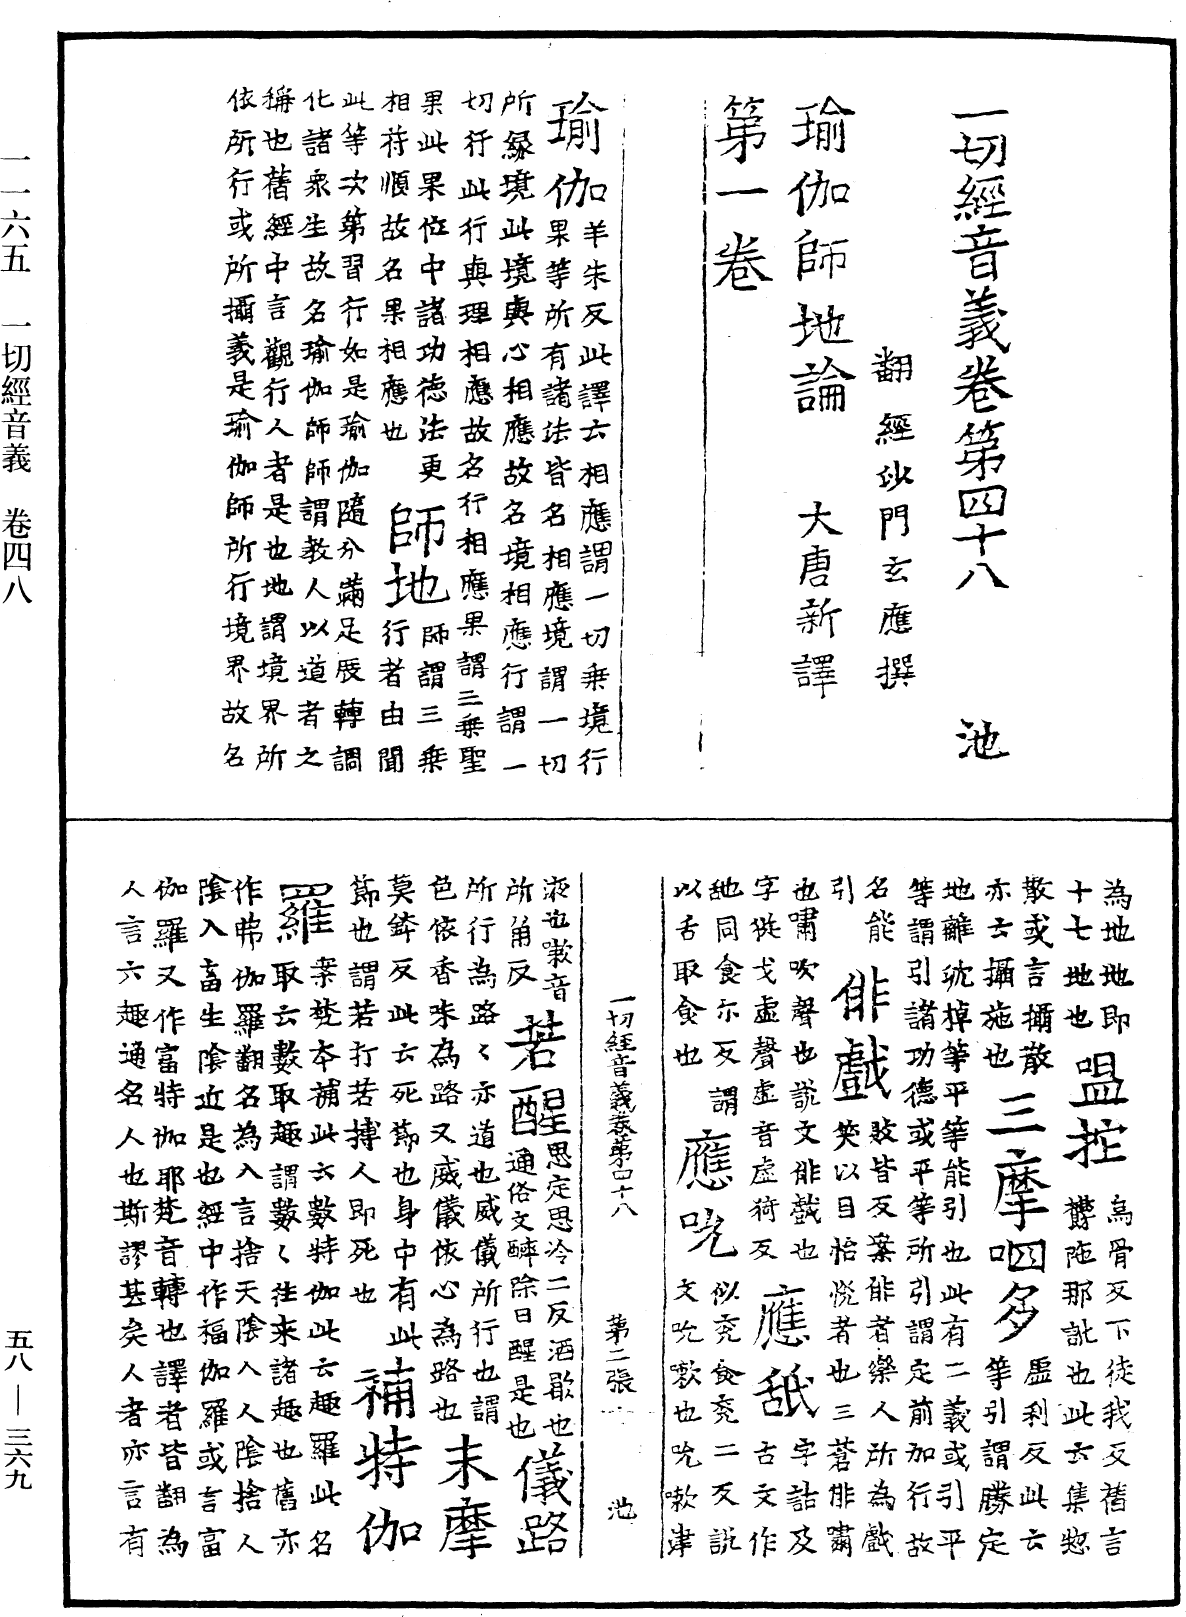 一切經音義卷第四十八　池
翻經沙門玄應撰
瑜伽師地論　大唐新譯
第一卷
瑜伽羊朱反此譯云相應謂一切乘境行
果等所有諸法皆名相應境謂一切
所緣境此境與心相應故名境相應行謂一
切行此行與理相應故名行相應果謂三乘聖
果此果位中諸功德法更
相符順故名果相應也
師地師謂三乘
行者由聞
此等次第習行如是瑜伽隨分滿足展轉調
化諸衆生故名瑜伽師師謂教人以道者之
稱也舊經中言觀行人者是也地謂境界所
依所行或所攝義是瑜伽師所行境界故名
為地地即
十七地也
嗢拕烏骨反下徒我反舊言
欝陁那訛也此云集惣
散或言攝散
亦云攝施也
三摩呬多虛利反此云
等引謂勝定
地離沈掉等平等能引也此有二義或引平
等謂引諸功德或平等所引謂定前加行故
名能
引
俳戲敱皆反案俳者樂人所為戲
笑以目怡悅者也三蒼俳嘯
也嘯吹聲也說文俳戲也
應舐字詁及
古文作
字從戈虛聲虛音虛猗反
舓同食尒反謂
以舌取食也
應吮似兖食兖二反說
文吮嗽也吮嗽津
液也嗽音
所角反
若醒思定思冷二反酒歇也
通俗文醉除曰醒是也
儀路
所行為路〻亦道也威儀所行也謂
色依香味為路又威儀依心為路也
末摩
莫鉢反此云死節也身中有此
節也謂若打若搏人即死也
補特伽
羅案梵本補此云數特伽此云趣羅此名
取云數取趣謂數〻往來諸趣也舊亦
作弗伽羅翻名為入言捨天陰入人陰捨人
陰入畜生陰近是也經中作福伽羅或言富
伽羅又作富特伽耶梵音轉也譯者皆翻為
人言六趣通名人也斯謬甚矣人者亦言有
一切經音義卷第四十八　第二張　池
一一六五　一切經音義　卷四八
五八—三六九